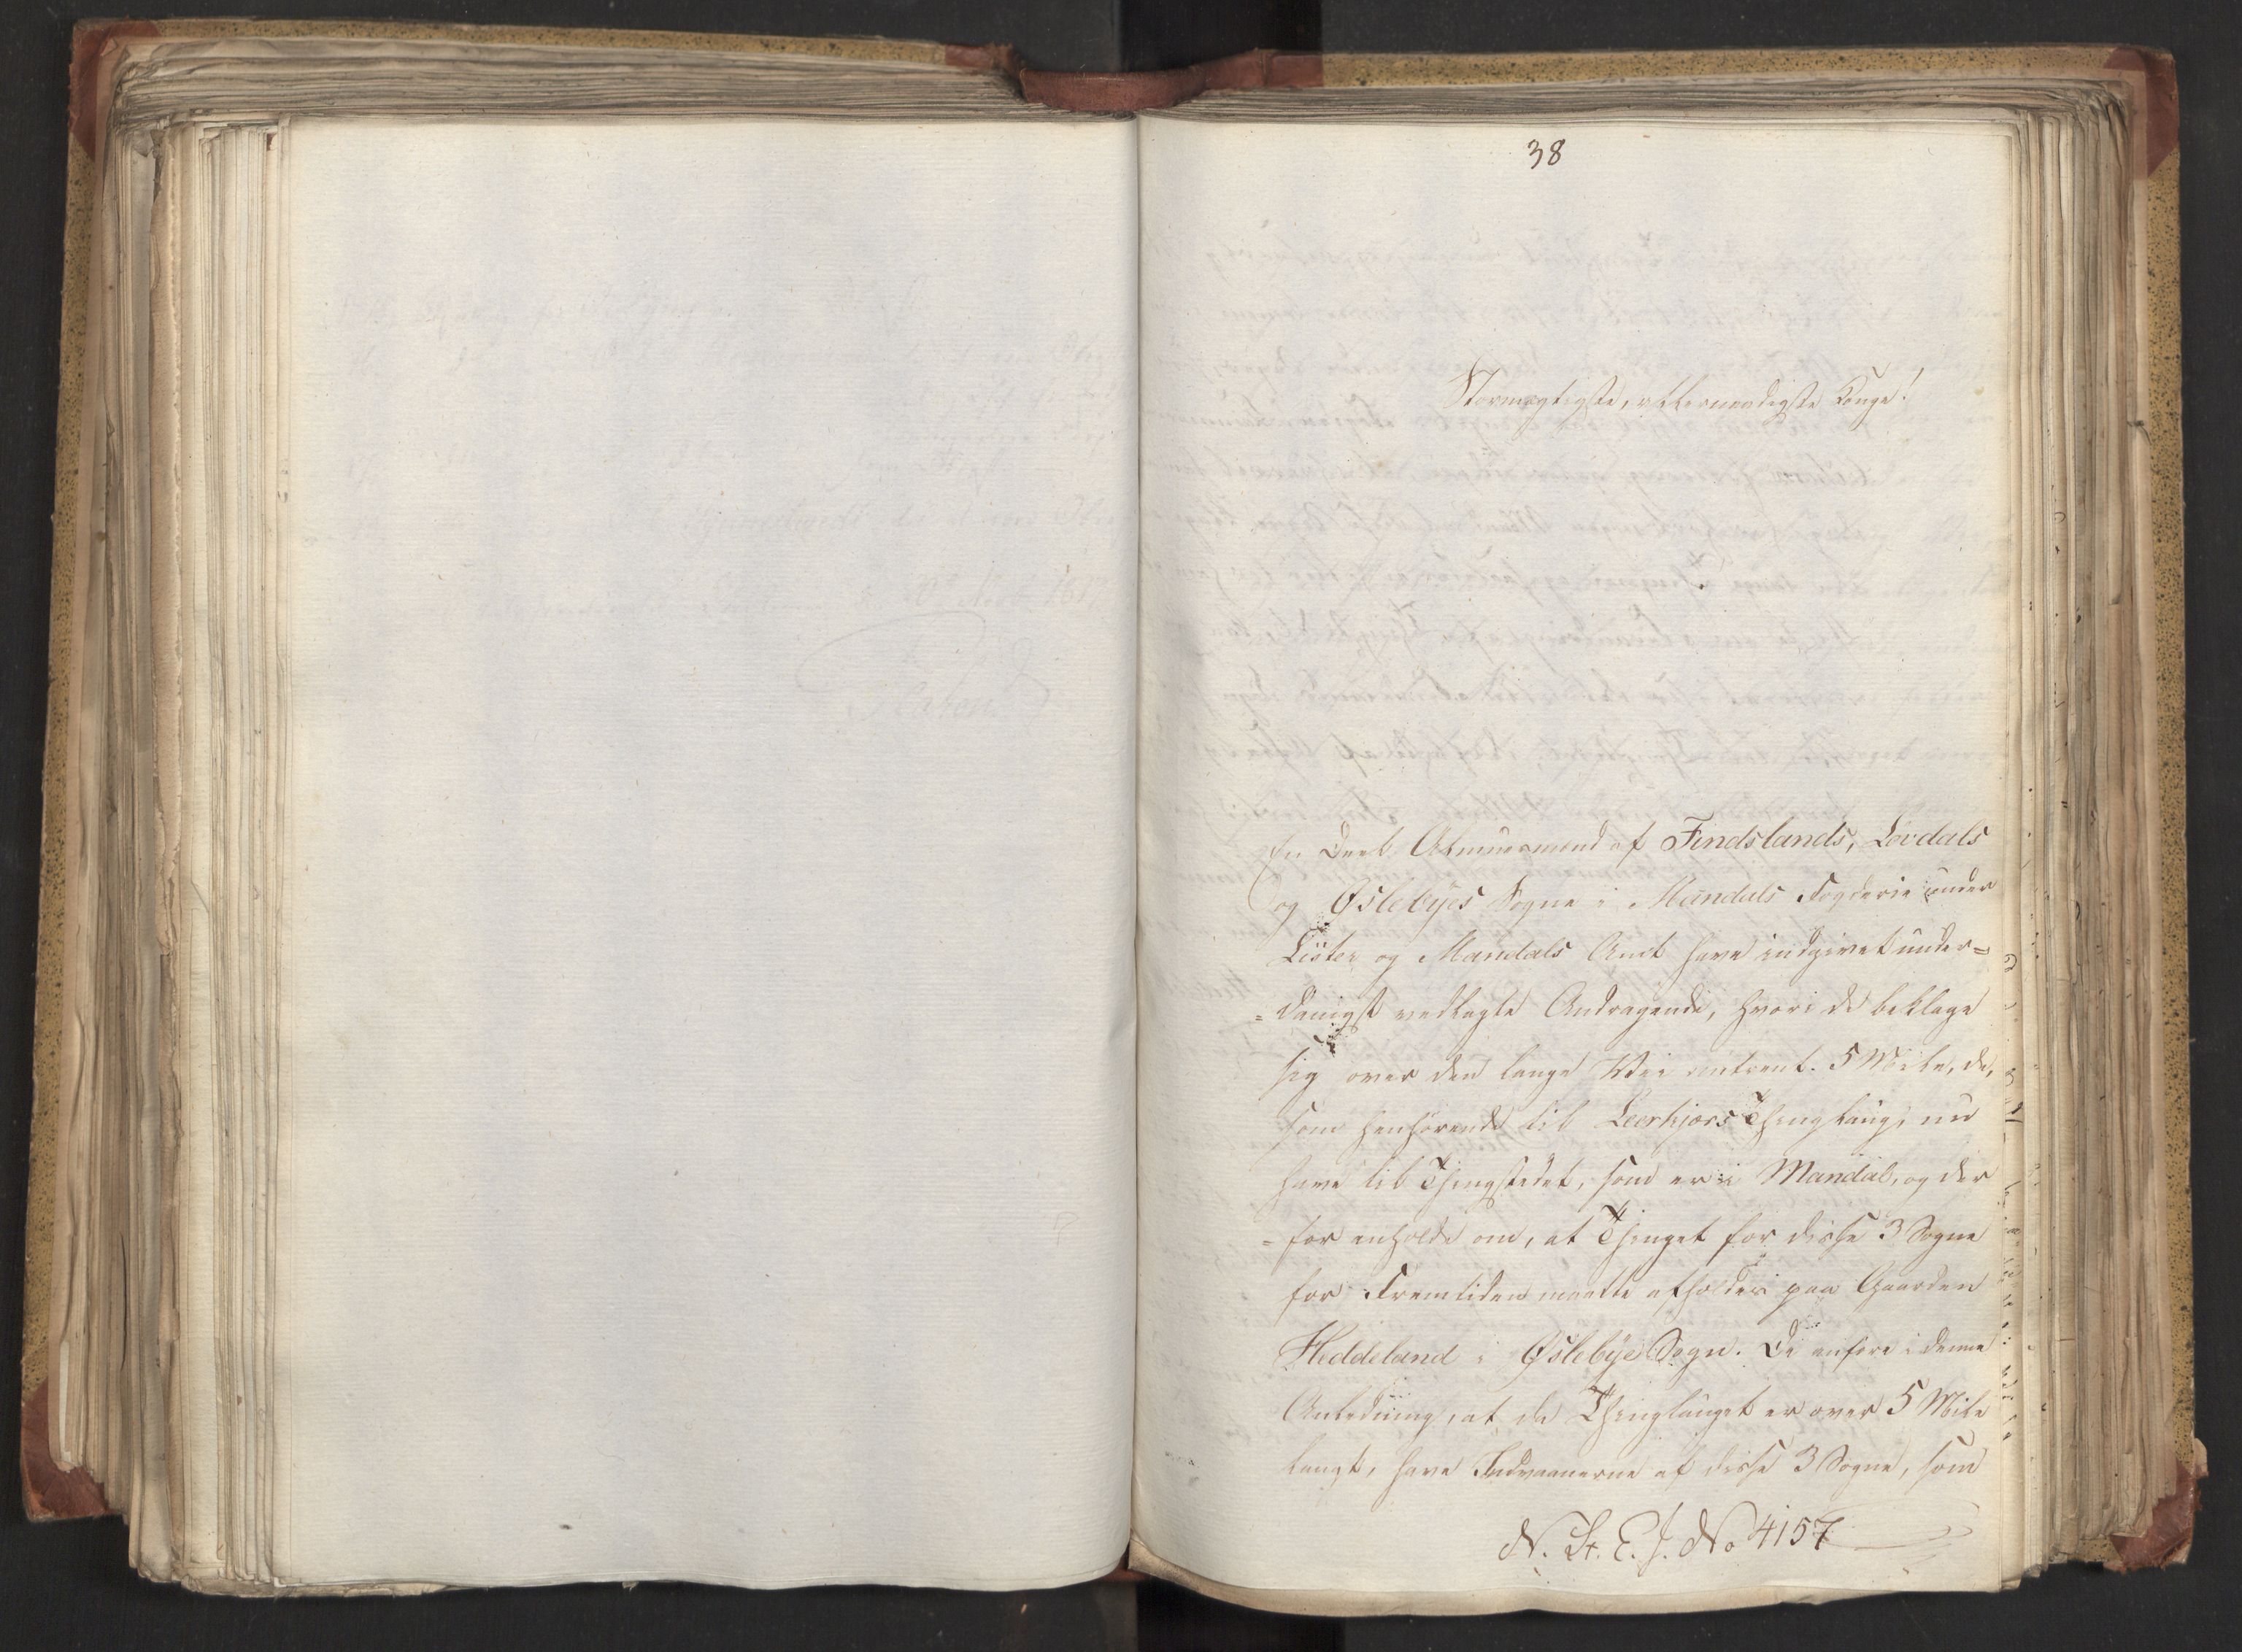 38
Stormægtigste, allernaadigste Konge!
En Deel Almuesmænd af Findslands, Lovdals
og Øslebyes Sogne i Mandals Fogderie under
Lister og Mandals Amt have indgivet under=
=danigst vedlagte Andragende, hvori de beklage
sig over den lange Vei omtrent 5 Mile, de,
som henhørende til Leerkjærs Thinglaug, nu
have til Thingstedet, som er i Mandal, og der
=for anholde om, at Thinget for disse 3 Sogne
for Fremtiden maatte afholdes paa Gaarden
Heddeland i Øslebye Sogn. De anføre i denne
Anledning, at da Thinglauget er over 5 Mile
langt, have Indvaanerne af disse 3 Sogne, som
N. St. E. J. No 4157